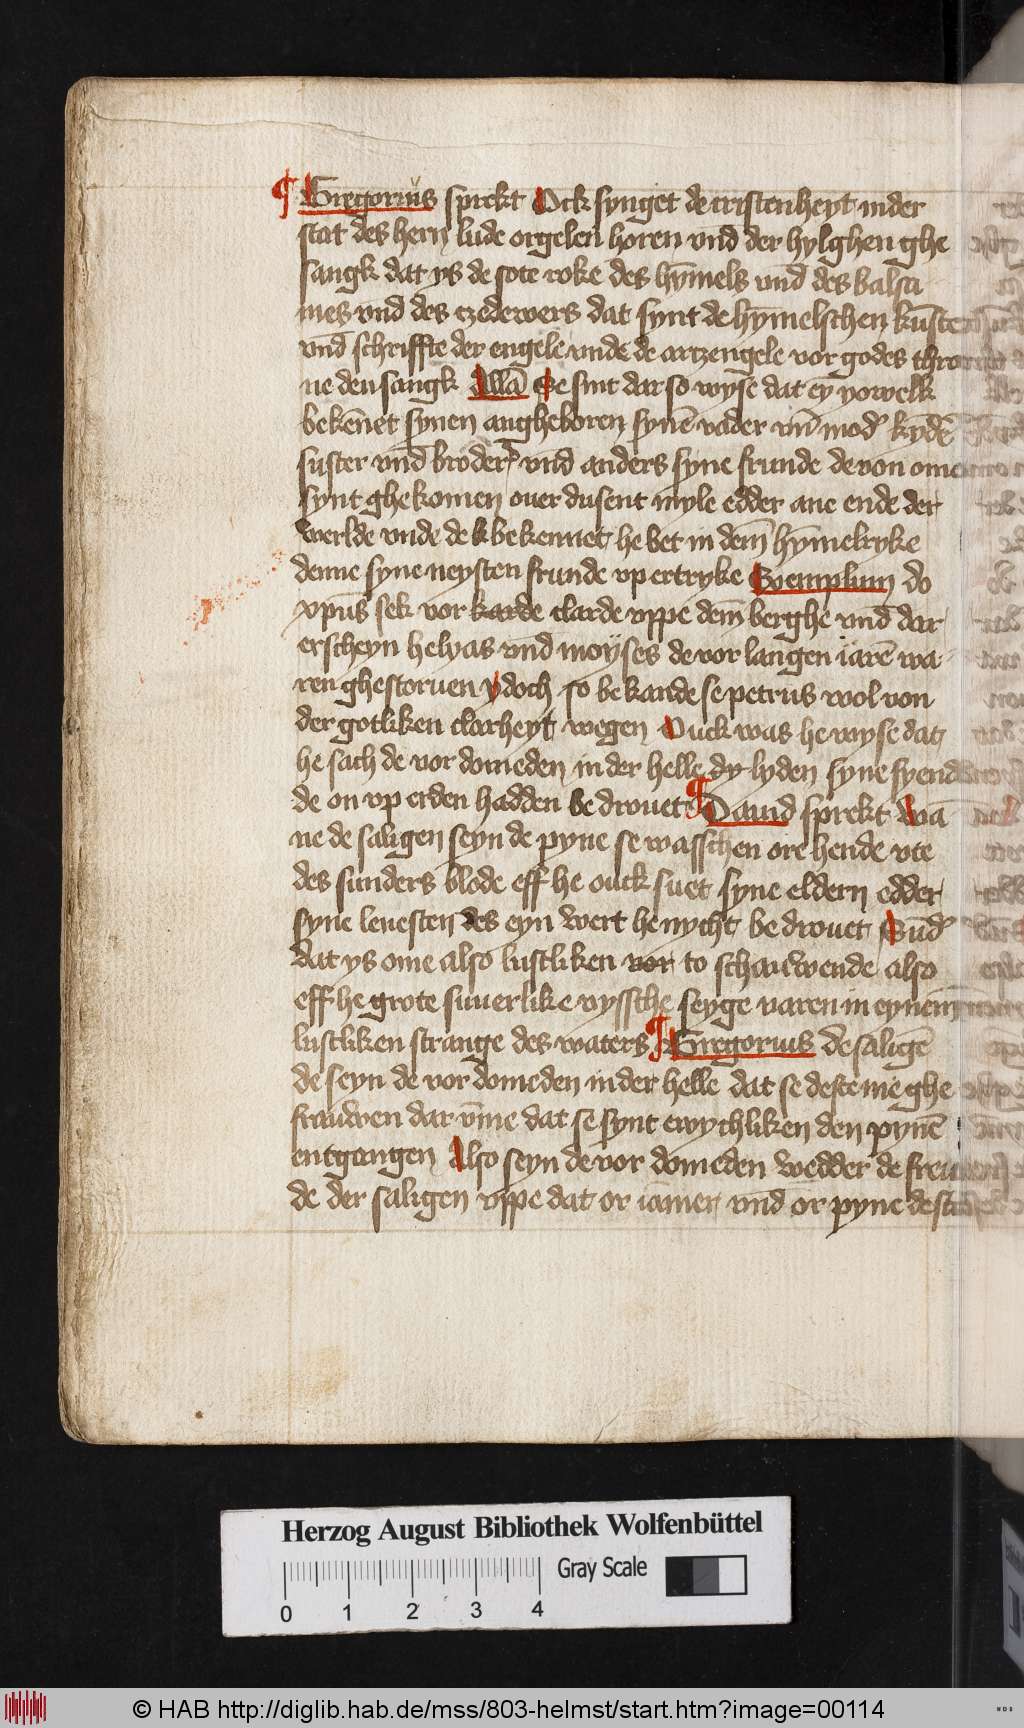 ¶ Gregorius sprekt Ock synget de cristenheyt in der
stat des hern lude orgelen horen vnd der hylghen ghe
sangk dat ys de sote roke des hymels vnd des balsa
mes vnd des czedewers dat synt de hymelschen kunste
vnd schriffte der engele vnde de artzengele vor godes thro
ne den sangk Se sint dar so wyse dat ey yowelk
bekēnet synen angheboren synē vader vn̄ mod᷑ kydē
suster vnd broder vnd anders syne frunde de von ome
synt ghekomen ouer dusent myle edder ane ende der
werlde vnde de bekennet he bet in dem̄ hȳmelryke
denne syne neysten frunde vp ertryke Exemplum do
xpūs sek vor clarde vppe dem̄ berghe vnd̄ dar
erscheyn helyas vnd̄ moÿses de vor langen iarē wa
ren ghestoruen ydoch so bekande se petrus wol von
der gotliken clarheyt wegen Ouck was he wyse dat
he sach de vordomeden in der helle lyden syne fyend
de on vp erden hadden bedrouet ¶ Dauid sprekt wā
ne de saligen seyn de pyne se wasschen ore hende vte
des sunders blode eff he ouck suet syne eldern edder
syne leuesten des eyn wert he nycht bedrouet Sūd᷑
dat ys ome also lustliken vor to schauwende also
eff he grote suuerlike vyssche seyge varen in eynem
lustliken strange des waters ¶ Gregorius de saligē
de seyn de vordomeden in der helle dat se deste me ghe
frauwen dar vm̄e dat se synt ewychliken den pynē
entgangen Also seyn de vordomeden wedder de freu
de der saligen vppe dat or iāmer vnd̄ or pyne deste
Herzog August Bibliothek Wolfenbüttel
Gray Scale
0 1 2 3 4
© HAB http://diglib.hab.de/mss/803-helmst/start.htm?image=00114